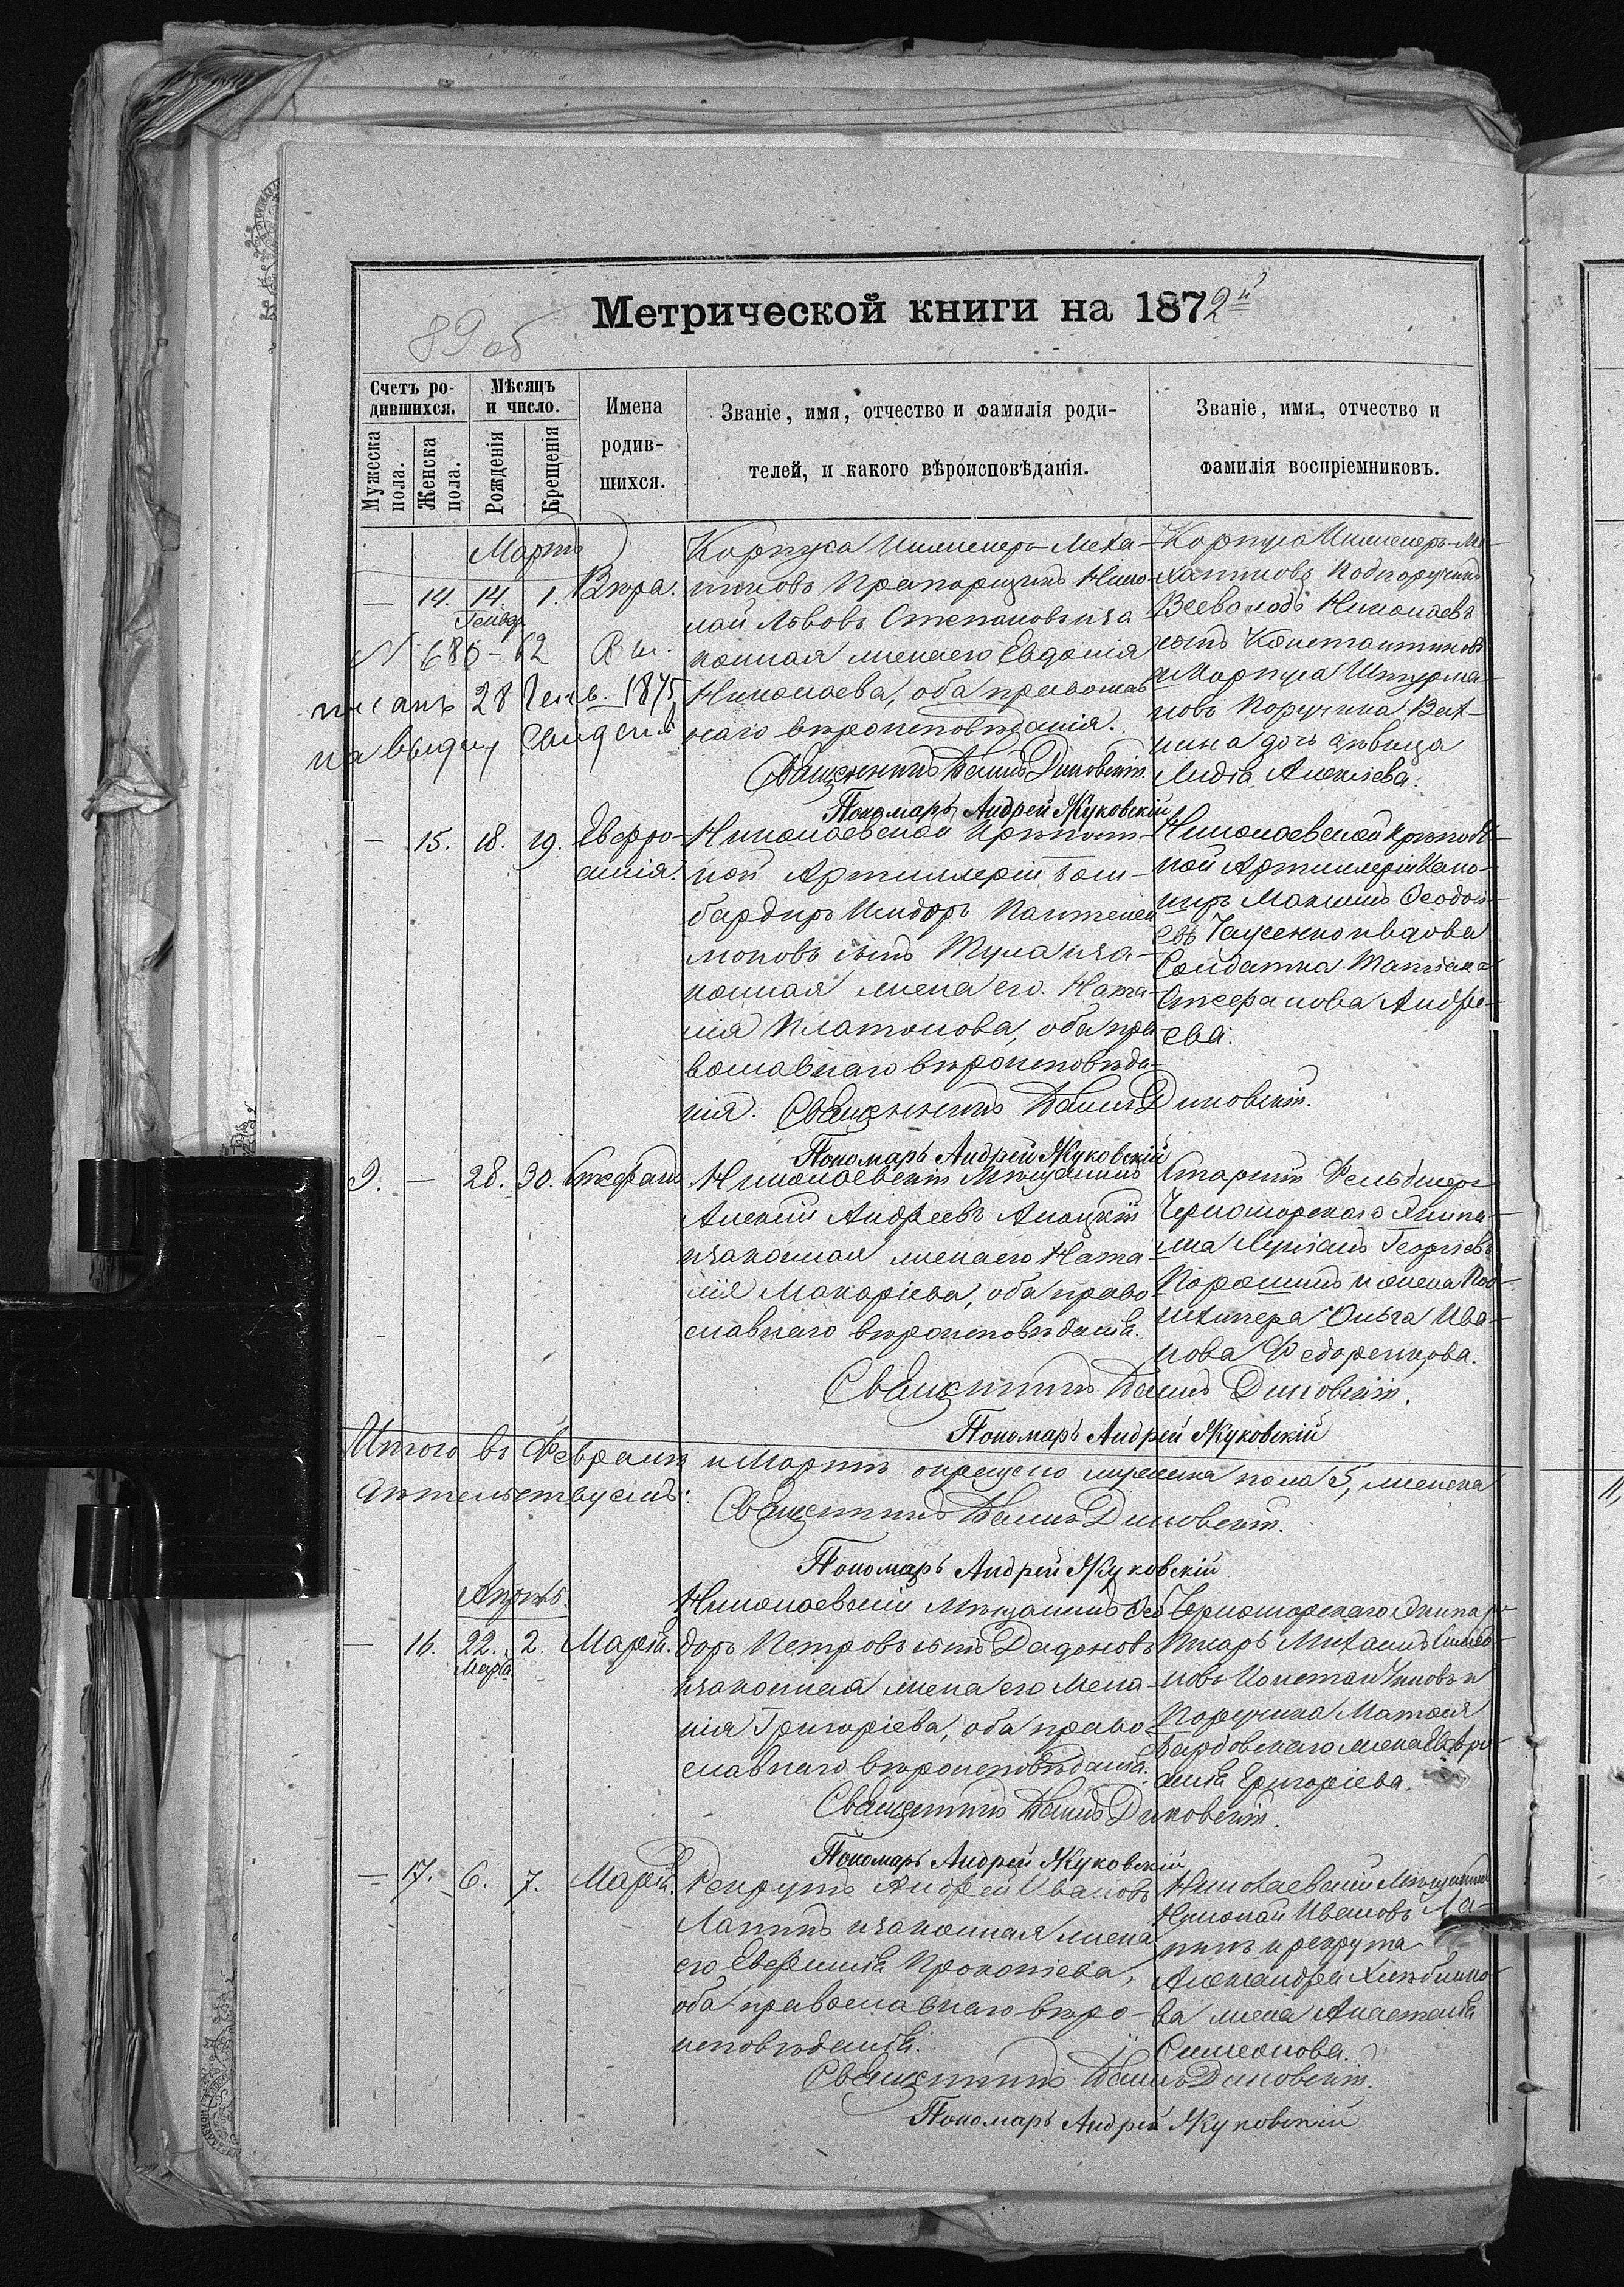 Метрической книги на 1872й
89 об
Счетъ ро-
дившихся.
Мѣсяцъ
и число.
Мужеска
пола.
Женска
пола.
Рожденія
Крещенія
Имена
родив-
шихся.
Званіе, имя, отчество и фамилія роди-
телей, и какого вѣроисповѣданія.
Званіе, имя, отчество и
фамилія воспріемниковъ.
Мартъ
— 14. 14. 1. Вѣра.
Генвар
№ 62
28 Генв. 1875
на выдачу
Корпуса Инженеръ-Меха-
никовъ Прапорщикъ Нико-
лай Львовъ Степановъ и за
конная жена его Евдокія
Николаева, оба православ
наго вѣроисповѣданія.
Священникъ Диковскій.
Пономарь Андрей Жуковскій
Корпуса Инженеръ-Ме-
ханиковъ Подпоручикъ
Всеволодъ Николаевъ
сынъ Константиновъ
и Корпуса Штурма-
новъ Поручика
дочь дѣвица
Лидія Алексіева.
— 15. 18. 19. Евфро-
синія.
Николаевской Крѣпост-
ной Артиллеріи Бом-
бардиръ Исидоръ Пантелей
моновъ сынъ и за-
конная жена его Ната-
лія Платонова, оба пра
вославнаго вѣроисповѣда-
нія. Священникъ Диковскій.
Пономарь Андрей Жуковскій
Николаевской Крѣпост-
ной Артиллеріи Кано-
ниръ Максимъ Ѳеодоть-
евъ и вдова
Солдатка Татіана
Стефанова Андре-
ева.
9. — 28. 30. Стефанъ
Николаевскій Мѣщанинъ
Алексій Андреевъ
и законная жена его Ната
лія Макаріева, оба право
славнаго вѣроисповѣданія.
Священникъ Диковскій.
Пономарь Андрей Жуковскій
Старшій Фельдшеръ
Черноморскаго Экипа-
жа Георгіевъ
и жена Под-
шкипера Ольга Ива-
нова Федоренкова.
Итого въ Февралѣ и Мартѣ окрещено мужеска пола 5, женска
Священникъ Диковскій.
Пономарь Андрей Жуковскій
Апрѣль.
— 16. 22. 2. Марія.
Марта
Николаевскій Мѣщанинъ Ѳео
доръ Петровъ сынъ Дадоновъ
и законная жена его Мела-
нія Григоріева, оба право-
славнаго вѣроисповѣданія.
Священникъ Диковскій.
Пономарь Андрей Жуковскій
Черноморскаго Экипажа
Писарь Михаилъ
новъ Константиновъ и
Поручика Матѳея
жена Евфро-
синія Григоріева.
— 17. 6. 7. Марія.
Рекрутъ Андрей Ивановъ
Лапинъ и законная жена
его Евфимія Прокопіева,
оба православнаго вѣро-
исповѣданія.
Священникъ Диковскій.
Пономарь Андрей Жуковскій
Николаевскій Мѣщанинъ
Николай Ивановъ Ла-
пинъ и рекрута
Александра Хлѣбнико-
ва жена Анастасія
Симеонова.